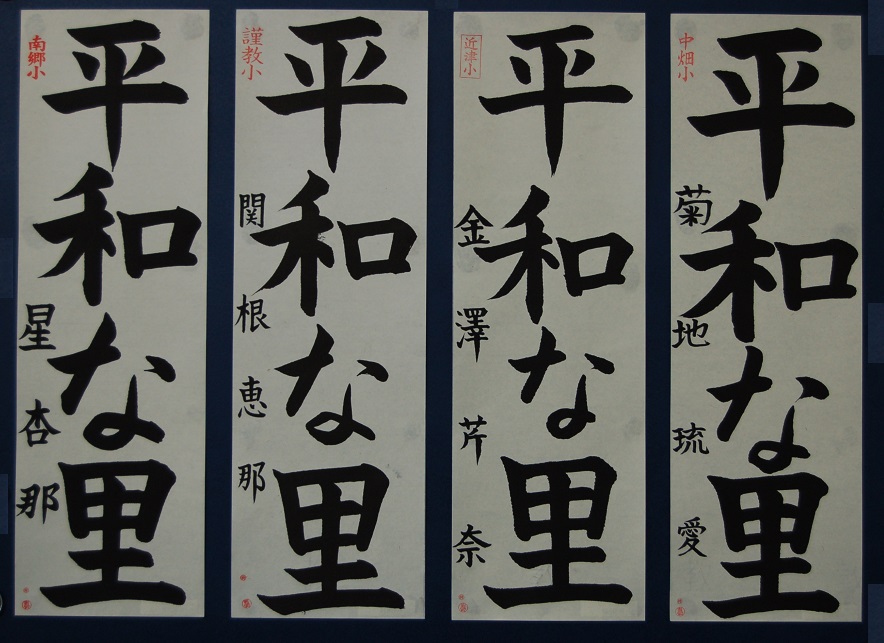 南郷小
平和な里
星杏那
謹教小
平和な里
関根恵那
近津小
平和な里
金澤芹奈
中畑小
平和な里
菊地琉愛